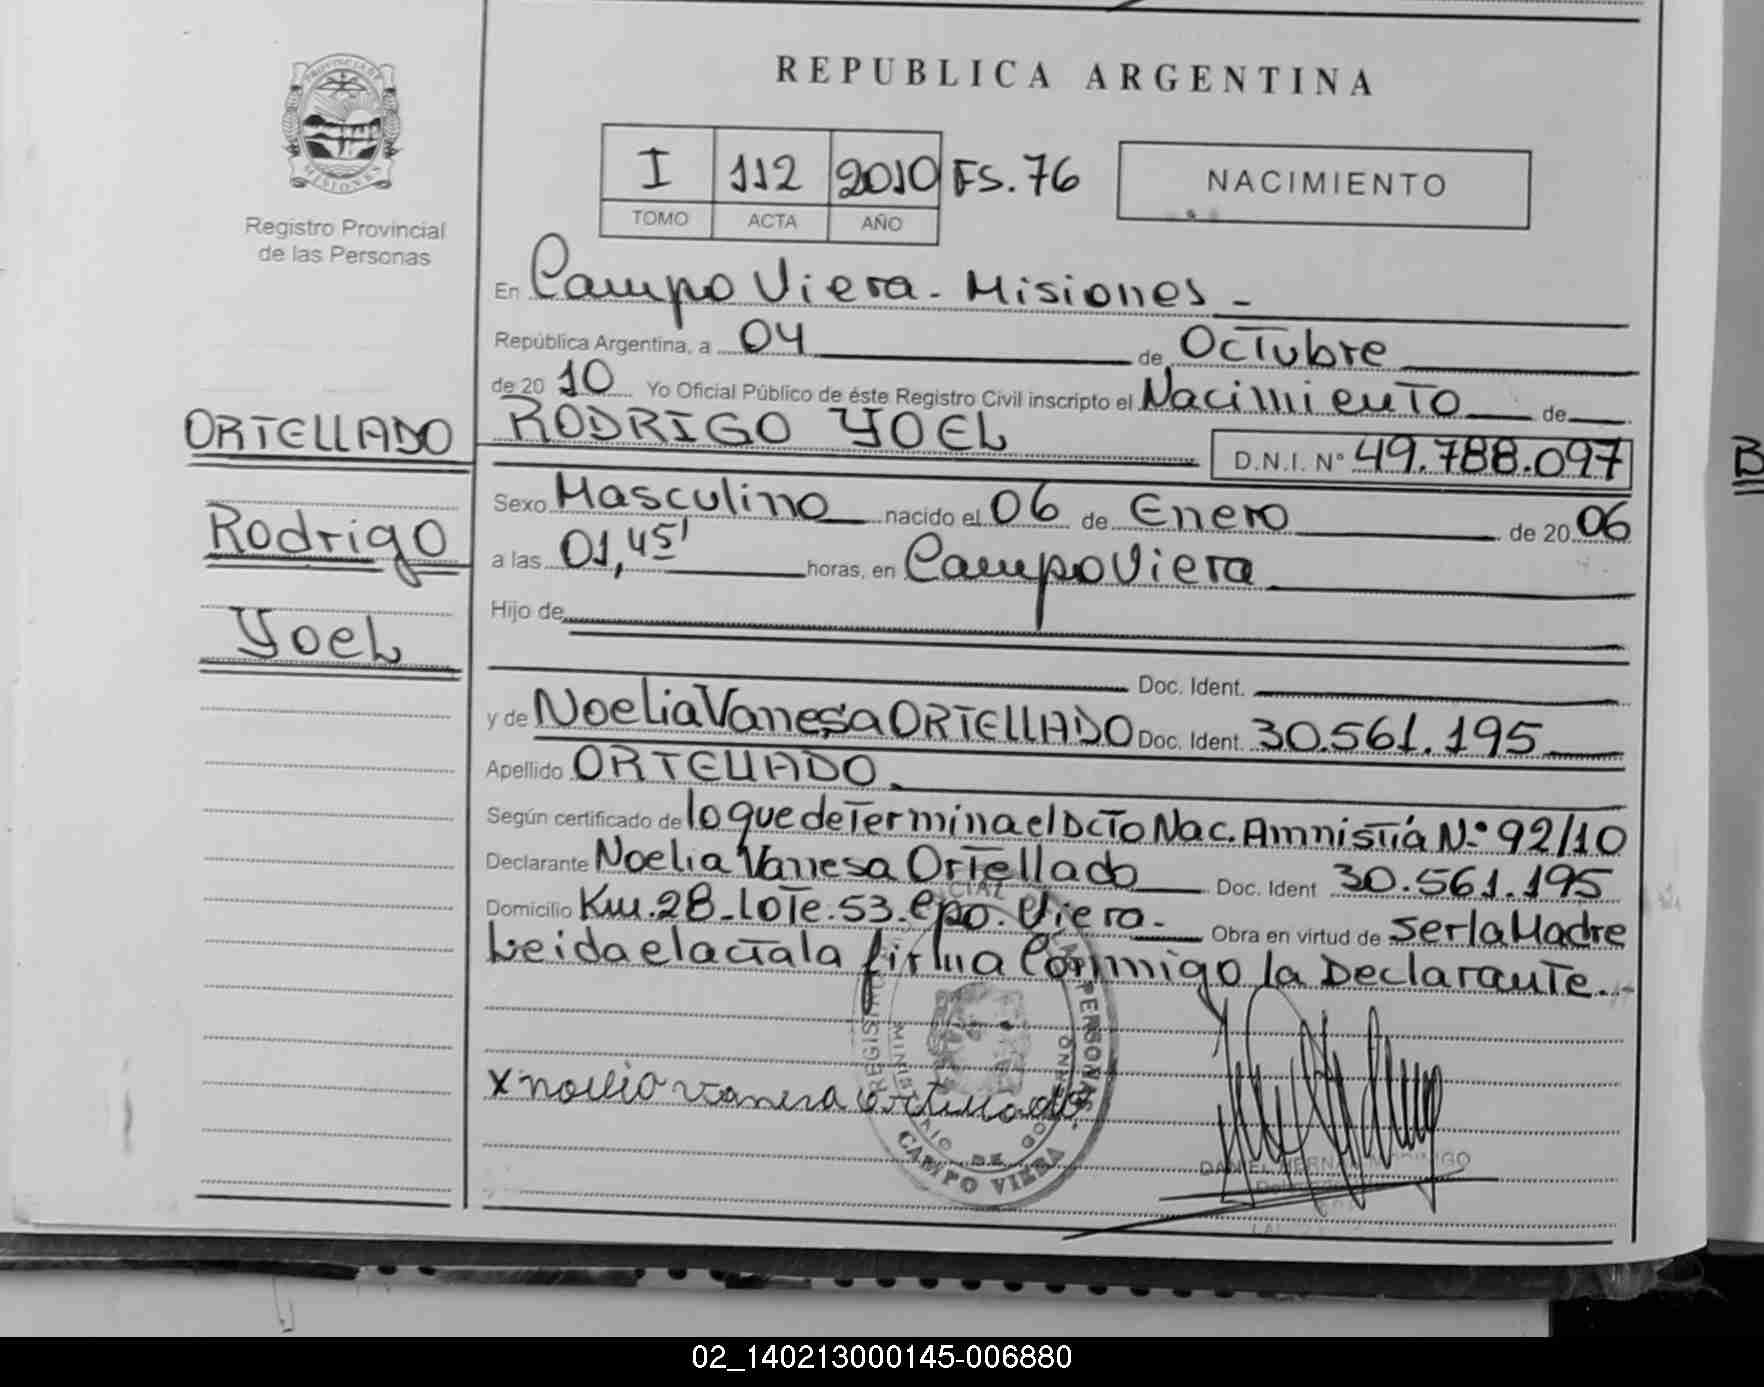 PROVINCIA DE
MISIONES
Registro Provincial
de las Personas
ORTELLADO
Rodrigo
Yoel
REPUBLICA ARGENTINA
I 112 2010 FS. 76
TOMO ACTA AÑO
NACIMIENTO
En Campo Viera - Misiones -
República Argentina, a 04 de Octubre
de 20 10 Yo Oficial Público de éste Registro Civil inscripto el Nacimiento de
RODRIGO YOEL D.N.I. Nº 49.788.097
Sexo Masculino nacido el 06 de Enero de 20 06
a las 01,45' horas, en Campo Viera
Hijo de
Doc. Ident.
y de Noelia Vanesa ORTELLADO Doc. Ident. 30.561.195
Apellido ORTELLADO
Según certificado de lo que determina el Dcto Nac. Amnistía Nº 92/10
Declarante Noelia Vanesa Ortellado Doc. Ident 30.561.195
Domicilio Km. 28 - Lote. 53. Cpo. Viera. Obra en virtud de ser la Madre
Leida el acta la firma Conmigo la Declarante.
x noelia vanesa ortellado
CAMPO VIERA
B
02_140213000145-006880